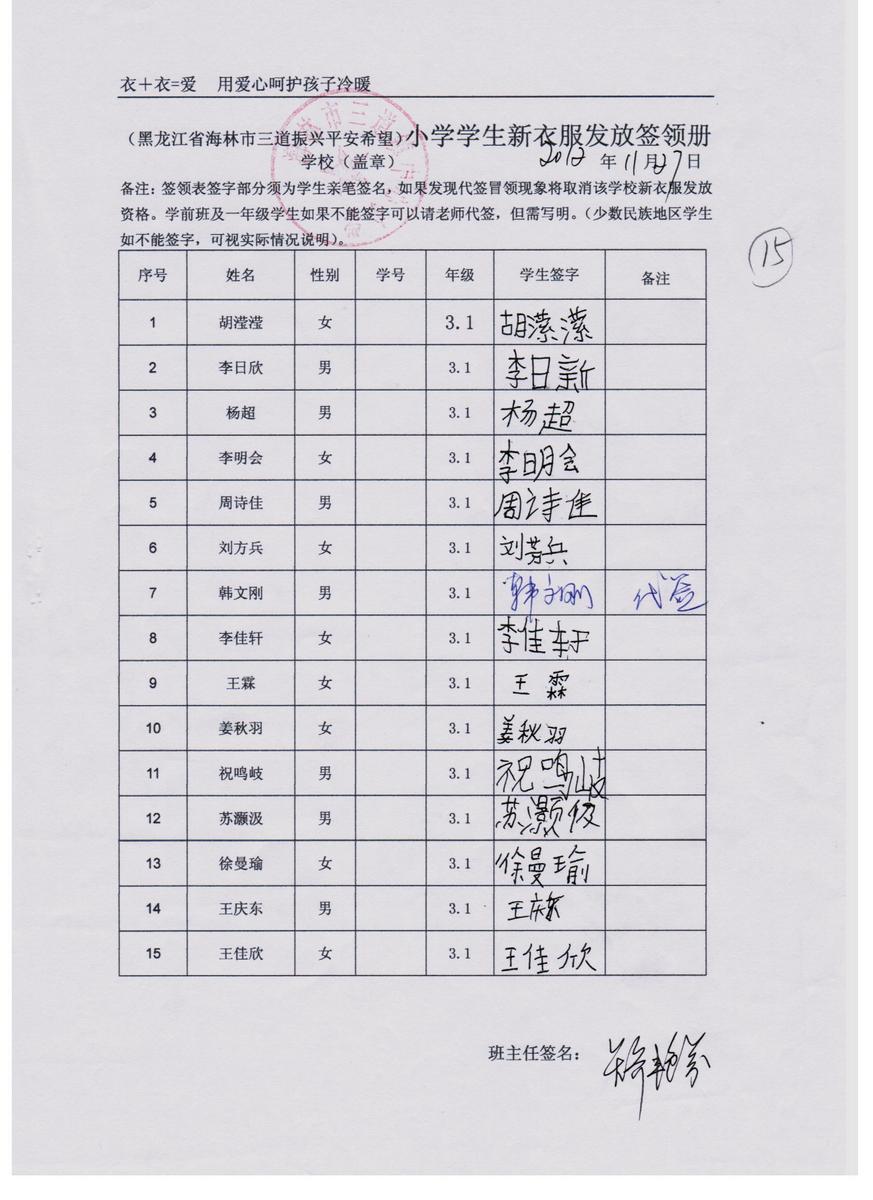 衣＋衣=爱 用爱心呵护孩子冷暖
（黑龙江省海林市三道振兴平安希望）小学学生新衣服发放签领册
学校（盖章） 2012 年 11 月 27 日
备注：签领表签字部分须为学生亲笔签名，如果发现代签冒领现象将取消该学校新衣服发放
资格。学前班及一年级学生如果不能签字可以请老师代签，但需写明。（少数民族地区学生
如不能签字，可视实际情况说明）。
15
序号 姓名 性别 学号 年级 学生签字 备注
1 胡滢滢 女 3.1 胡潆潆
2 李日欣 男 3.1 李日新
3 杨超 男 3.1 杨超
4 李明会 女 3.1 李明会
5 周诗佳 男 3.1 周诗佳
6 刘方兵 女 3.1 刘芳兵
7 韩文刚 男 3.1 韩文刚 代签
8 李佳轩 女 3.1 李佳轩
9 王霖 女 3.1 王霖
10 姜秋羽 女 3.1 姜秋羽
11 祝鸣岐 男 3.1 祝鸣岐
12 苏灏汲 男 3.1 苏灏
13 徐曼瑜 女 3.1 徐曼瑜
14 王庆东 男 3.1 王庆东
15 王佳欣 女 3.1 王佳欣
班主任签名：